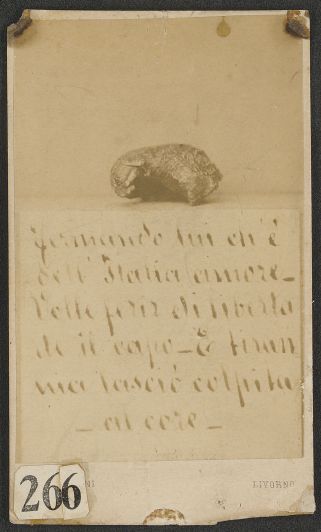 fermando lui ch'è
dell' Italia amore_
Volle ferir di liberta
de il capo_ E tiran
nia lasciò colpita
_ al core _
NI
LIVORNO
266